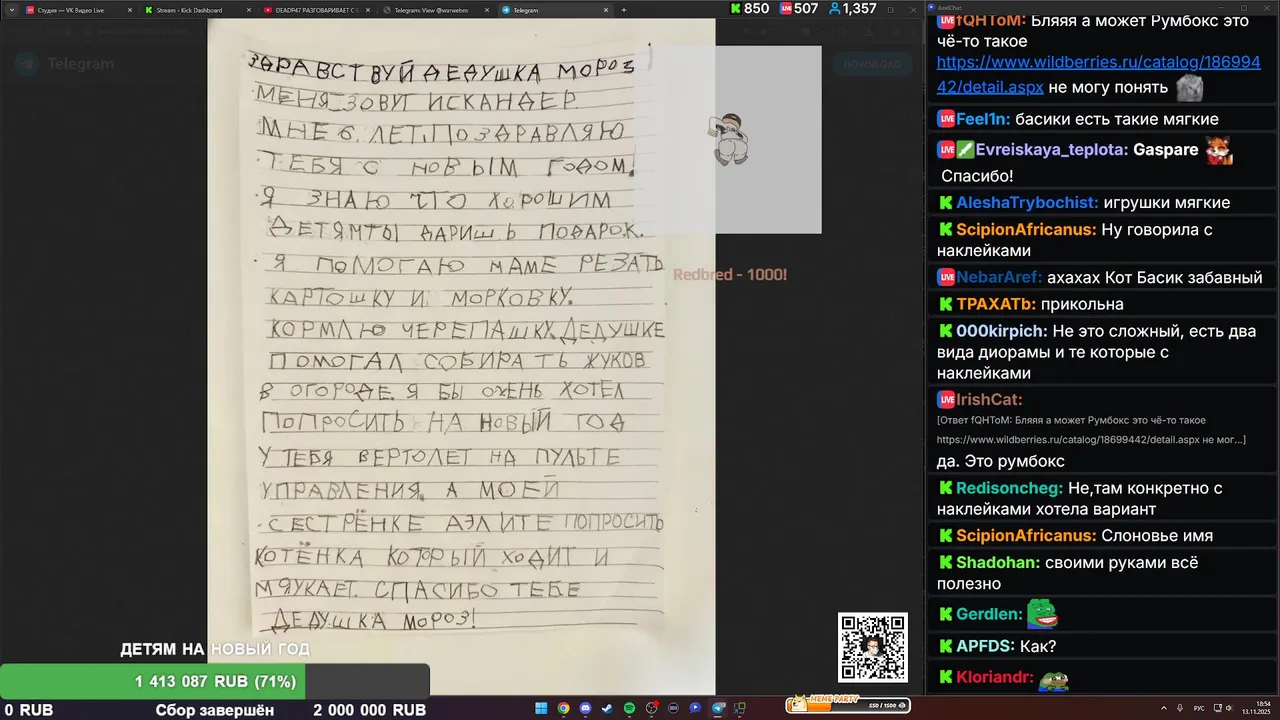 Студия — VK Видео Live
Stream - Kick Dashboard
DEADP47 РАЗГОВАРИВАЕТ С
Telegram: View @warwebm
Telegram
850
507
1,357
Telegram
DOWNLOAD
ЗДРАВСТВУЙ ДЕДУШКА МОРОЗ
МЕНЯ ЗОВУТ ИСКАНДЕР.
МНЕ 6 ЛЕТ. ПОЗДРАВЛЯЮ
ТЕБЯ С НОВЫМ ГОДОМ!
Я ЗНАЮ ЧТО ХОРОШИМ
ДЕТЯМ ТЫ ДАРИШЬ ПОДАРОК.
Я ПОМОГАЮ МАМЕ РЕЗАТЬ
КАРТОШКУ И МОРКОВКУ.
КОРМЛЮ ЧЕРЕПАШКУ. ДЕДУШКЕ
ПОМОГАЛ СОБИРАТЬ ЖУКОВ
В ОГОРОДЕ. Я БЫ ОЧЕНЬ ХОТЕЛ
ПОПРОСИТЬ НА НОВЫЙ ГОД
У ТЕБЯ ВЕРТОЛЕТ НА ПУЛЬТЕ
УПРАВЛЕНИЯ. А МОЕЙ
СЕСТРЁНКЕ АЭЛИТЕ ПОПРОСИТЬ
КОТЁНКА КОТОРЫЙ ХОДИТ И
МЯУКАЕТ. СПАСИБО ТЕБЕ
ДЕДУШКА МОРОЗ!
Redbred - 1000!
ДЕТЯМ НА НОВЫЙ ГОД
1 413 087 RUB (71%)
0 RUB Сбор завершён 2 000 000 RUB
MEME PARTY
550 / 1500
РУС
18:54
13.11.2025
AxelChat
fQHToM: Бляяя а может Румбокс это
чё-то такое
https://www.wildberries.ru/catalog/186994
42/detail.aspx не могу понять
Feel1n: басики есть такие мягкие
Evreiskaya_teplota: Gaspare
Спасибо!
AleshaTrybochist: игрушки мягкие
ScipionAfricanus: Ну говорила с
наклейками
NebarAref: ахахах Кот Басик забавный
ТРАХАТЬ: прикольна
000kirpich: Не это сложный, есть два
вида диорамы и те которые с
наклейками
IrishCat:
[Ответ fQHToM: Бляяя а может Румбокс это чё-то такое
https://www.wildberries.ru/catalog/18699442/detail.aspx не мог...]
да. Это румбокс
Redisoncheg: Не,там конкретно с
наклейками хотела вариант
ScipionAfricanus: Слоновье имя
Shadohan: своими руками всё
полезно
Gerdlen:
APFDS: Как?
Kloriandr: